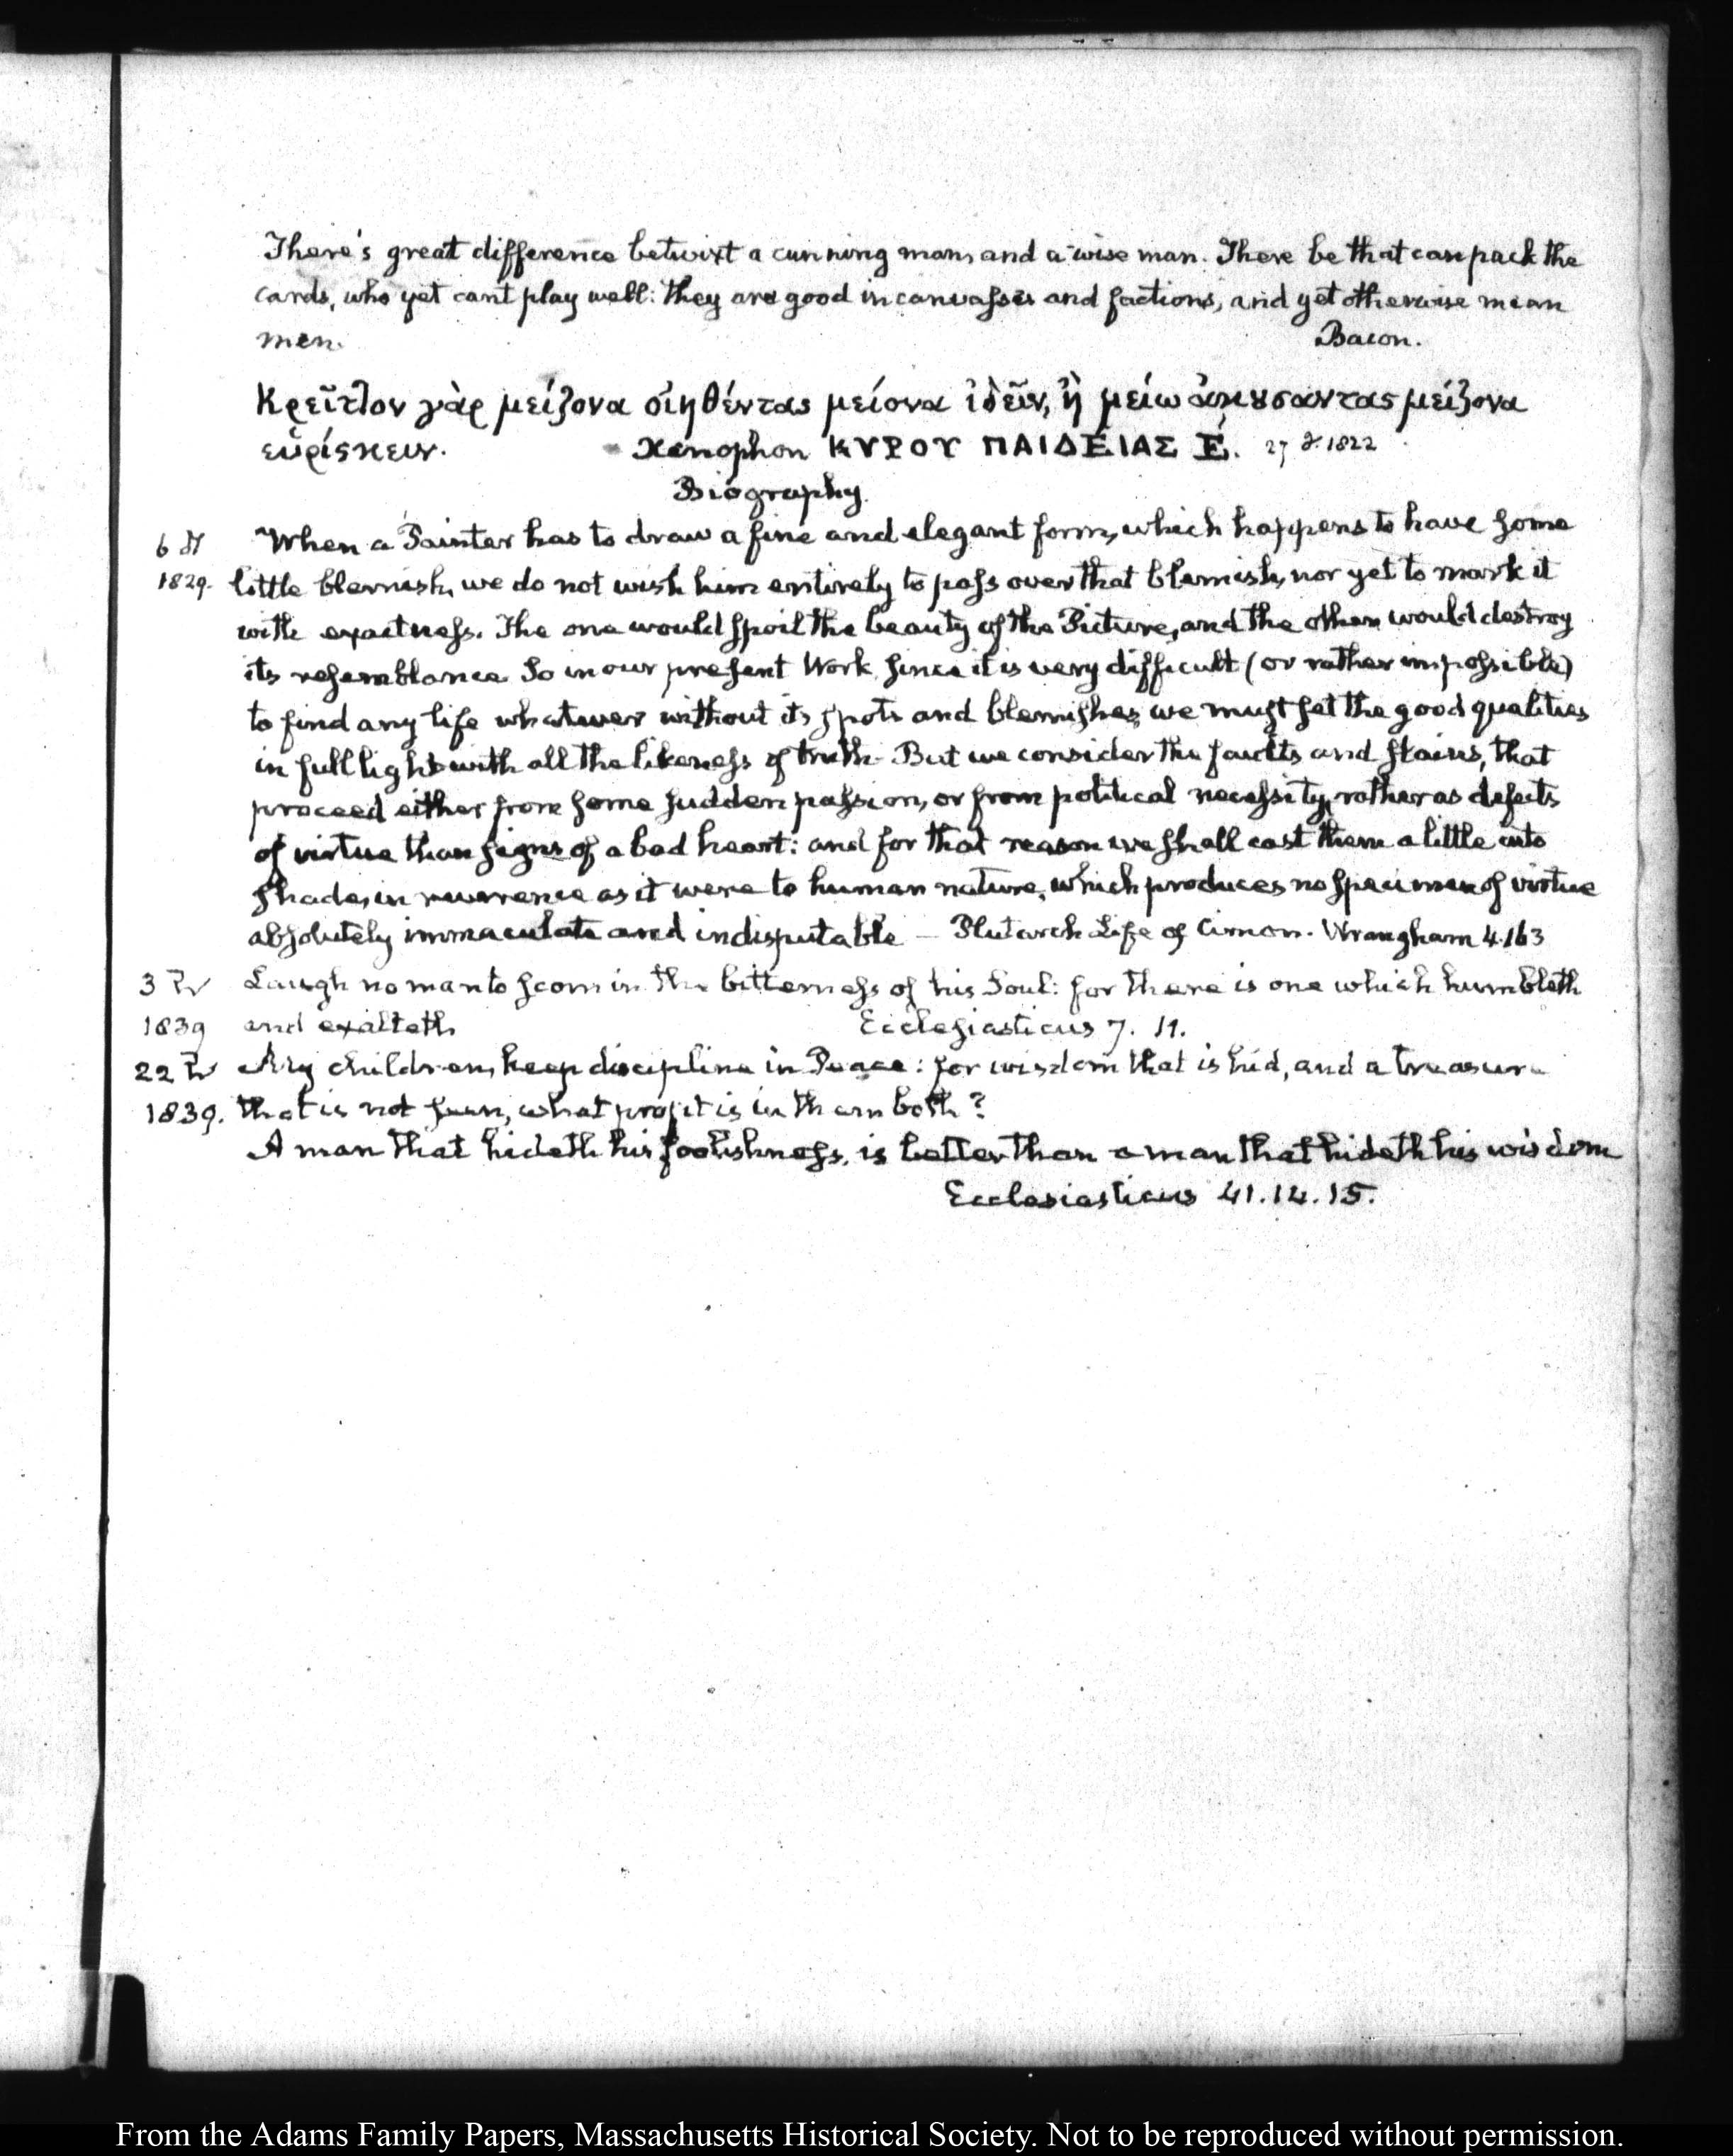 There's great difference betwixt a cunning man, and a wise man. There be that can pack the
cards, who yet can't play well: they are good in canvasses and factions, and yet otherwise mean
men.
Bacon.
Κρεῖτlον γὰρ μείζονα οἰηθέντας μείονα ἰδεῖν, ἢ μείω ἀκȣσαντας μείζονα
εὑρίσκειν.
Xenophon ΚΥΡΟΥ ΠΑΙΔΕΙΑΣ Ε. 27 1822
Biography.
6
When a Painter has to draw a fine and elegant form, which happens to have some
1829.
little blemish, we do not wish him entirely to pass over that blemish, nor yet to mark it
with exactness. The one would spoil the beauty of the Picture, and the other would destroy
its resemblance. So in our present Work, since it is very difficult (or rather impossible)
to find any life whatever without its spots and blemishes, we must set the good qualities
in full light with all the likeness of truth. But we consider the faults and stains, that
proceed either from some sudden passion, or from political necessity, rather as defects
of virtue than signs of a bad heart: and for that reason we shall cast them a little into
shade, in reverence as it were to human nature, which produces no specimen of virtue
absolutely immaculate and indisputable — Plutarch Life of Cimon. Wrangham 4.163
3
Laugh no man to scorn in the bitterness of his Soul: for there is one which humbleth
1839
and exalteth
Ecclesiasticus 7. 11.
22
My children, keep discipline in Peace: for wisdom that is hid, and a treasure
1839.
that is not seen, what profit is in them both?
A man that hideth his foolishness, is better than a man that hideth his wisdom
Ecclesiasticus 41.14.15.
From the Adams Family Papers, Massachusetts Historical Society. Not to be reproduced without permission.